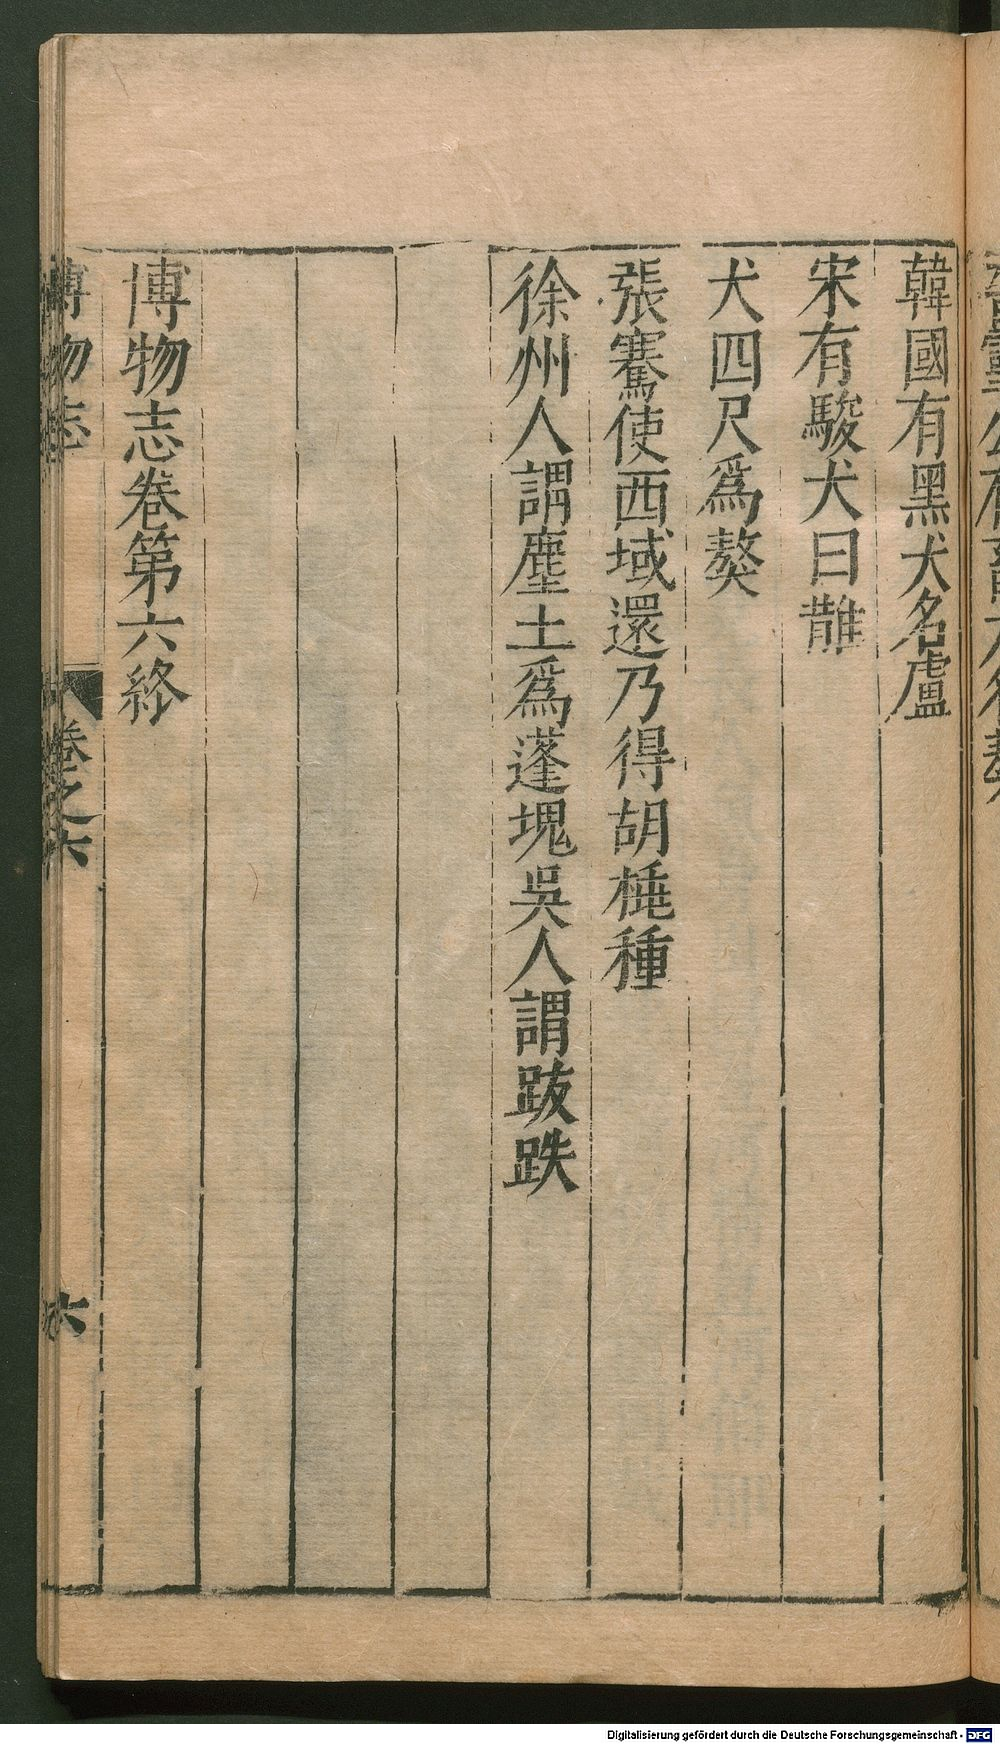 韓國有黑犬名盧
宋有駿犬曰㹱
犬四尺爲獒
張騫使西域還乃得胡桃種
徐州人謂塵土爲蓬塊吳人謂跋跌
博物志卷第六終
博物志
卷之六
六
Digitalisierung gefördert durch die Deutsche Forschungsgemeinschaft - DFG